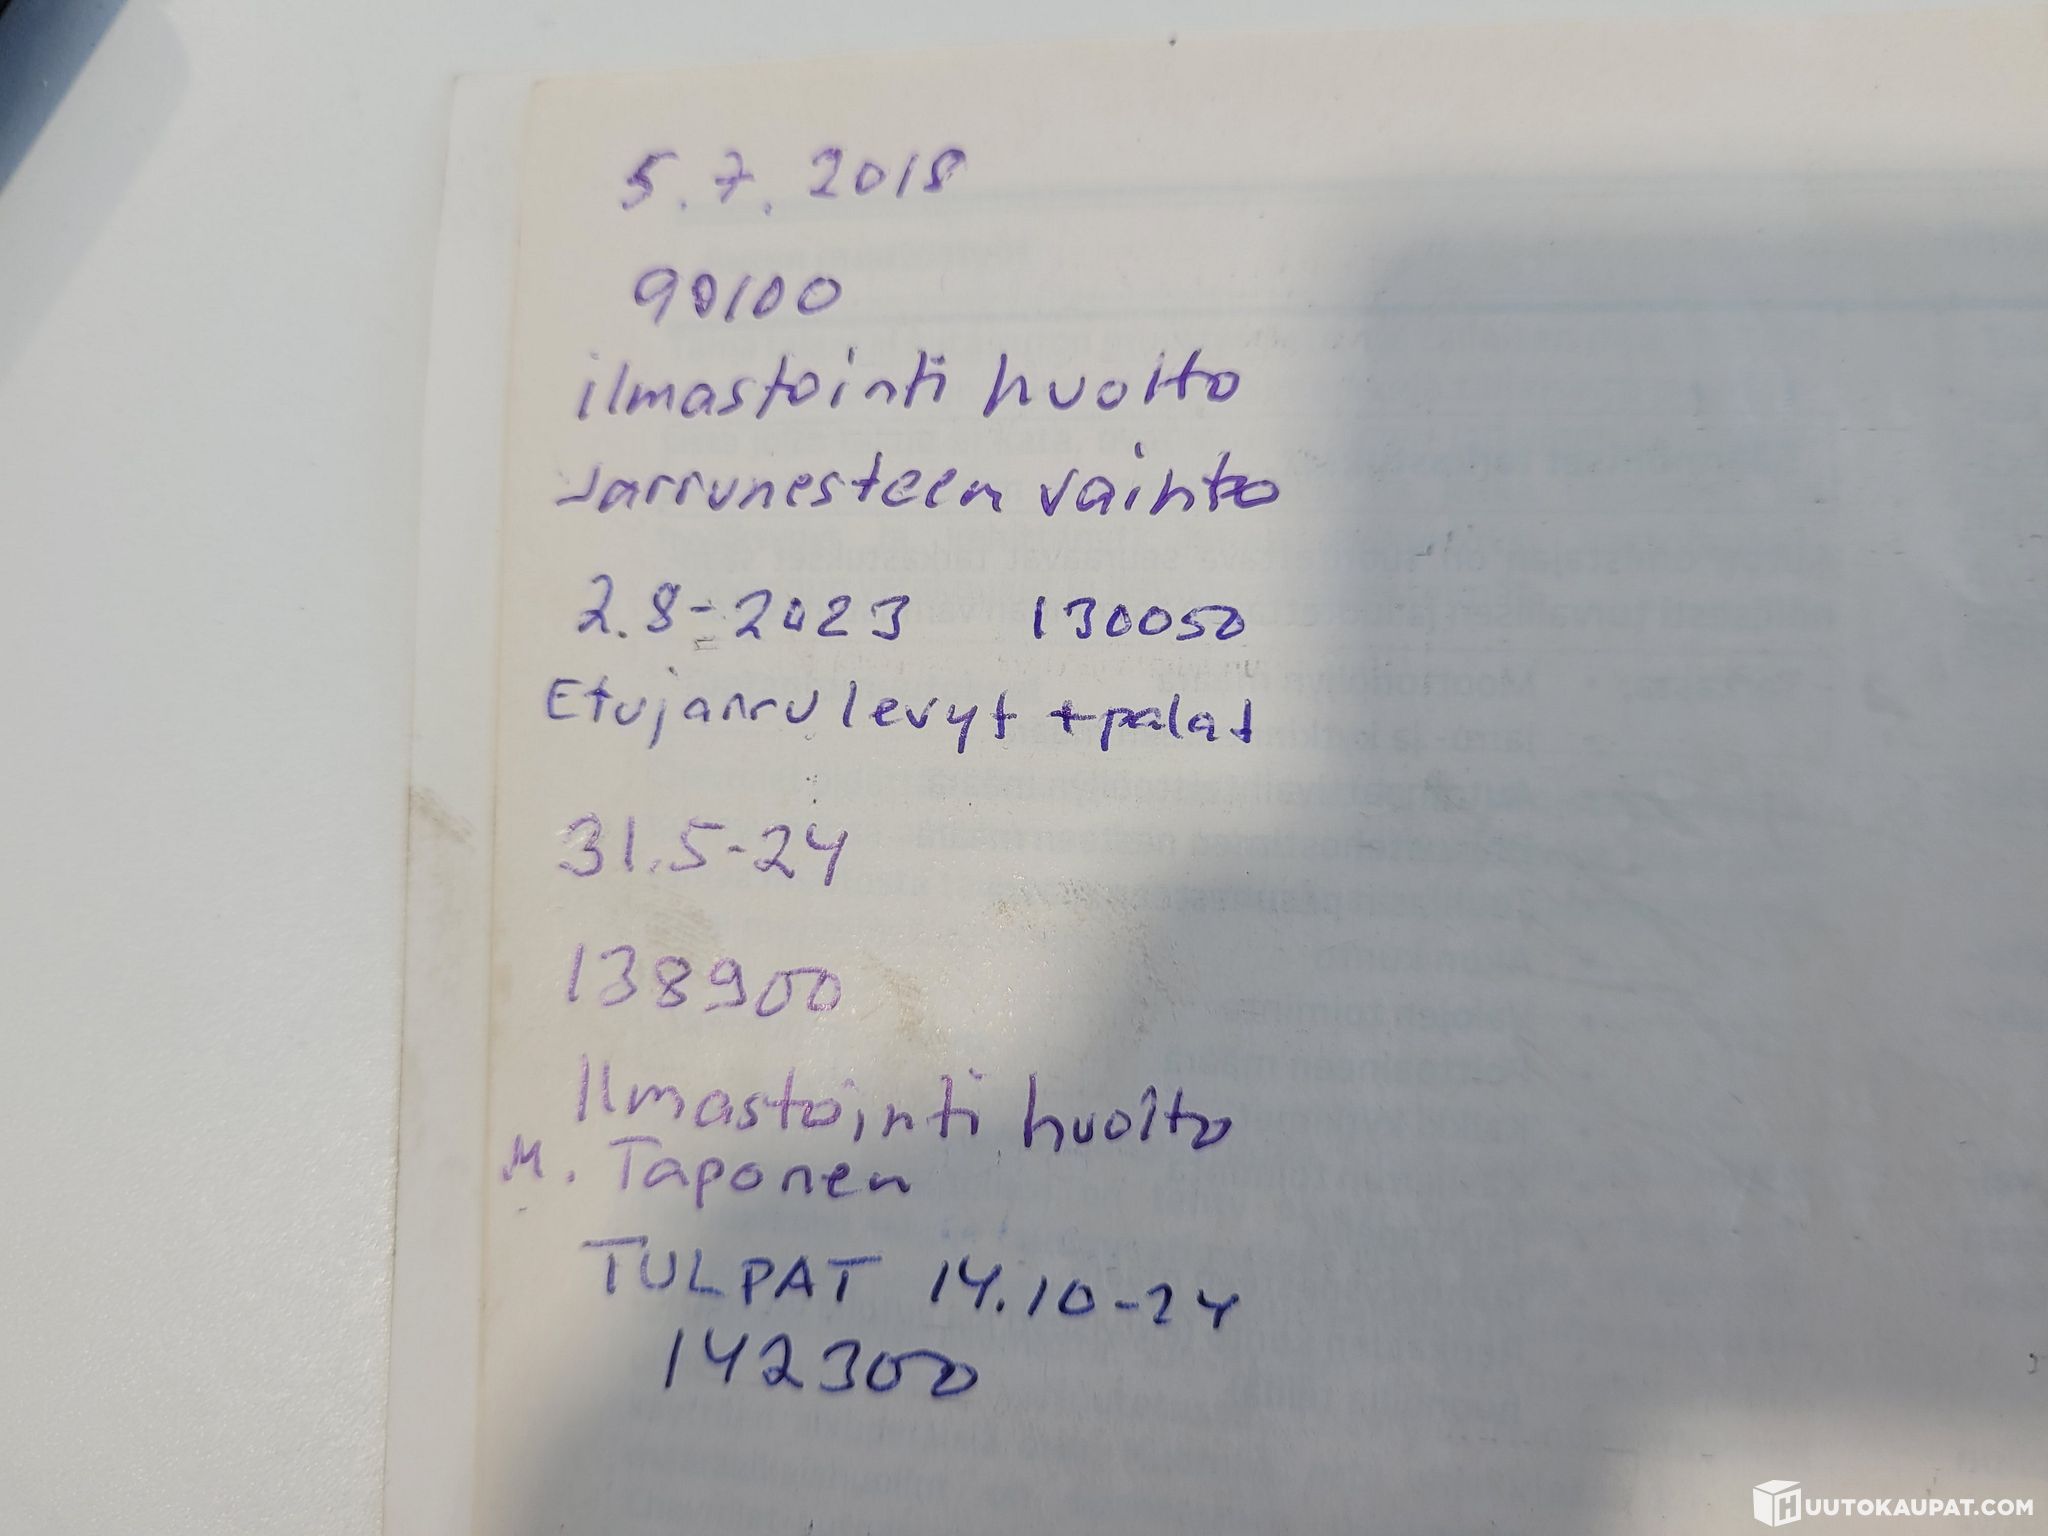 5.7.2018
90100
ilmastointi huolto
Jarrunesteen vaihto
2.8-2023 130050
Etujarru levyt + palat
31.5-24
138900
Ilmastointi huolto
M. Taponen
TULPAT 14.10-24
142300
HUUTOKAUPAT.COM